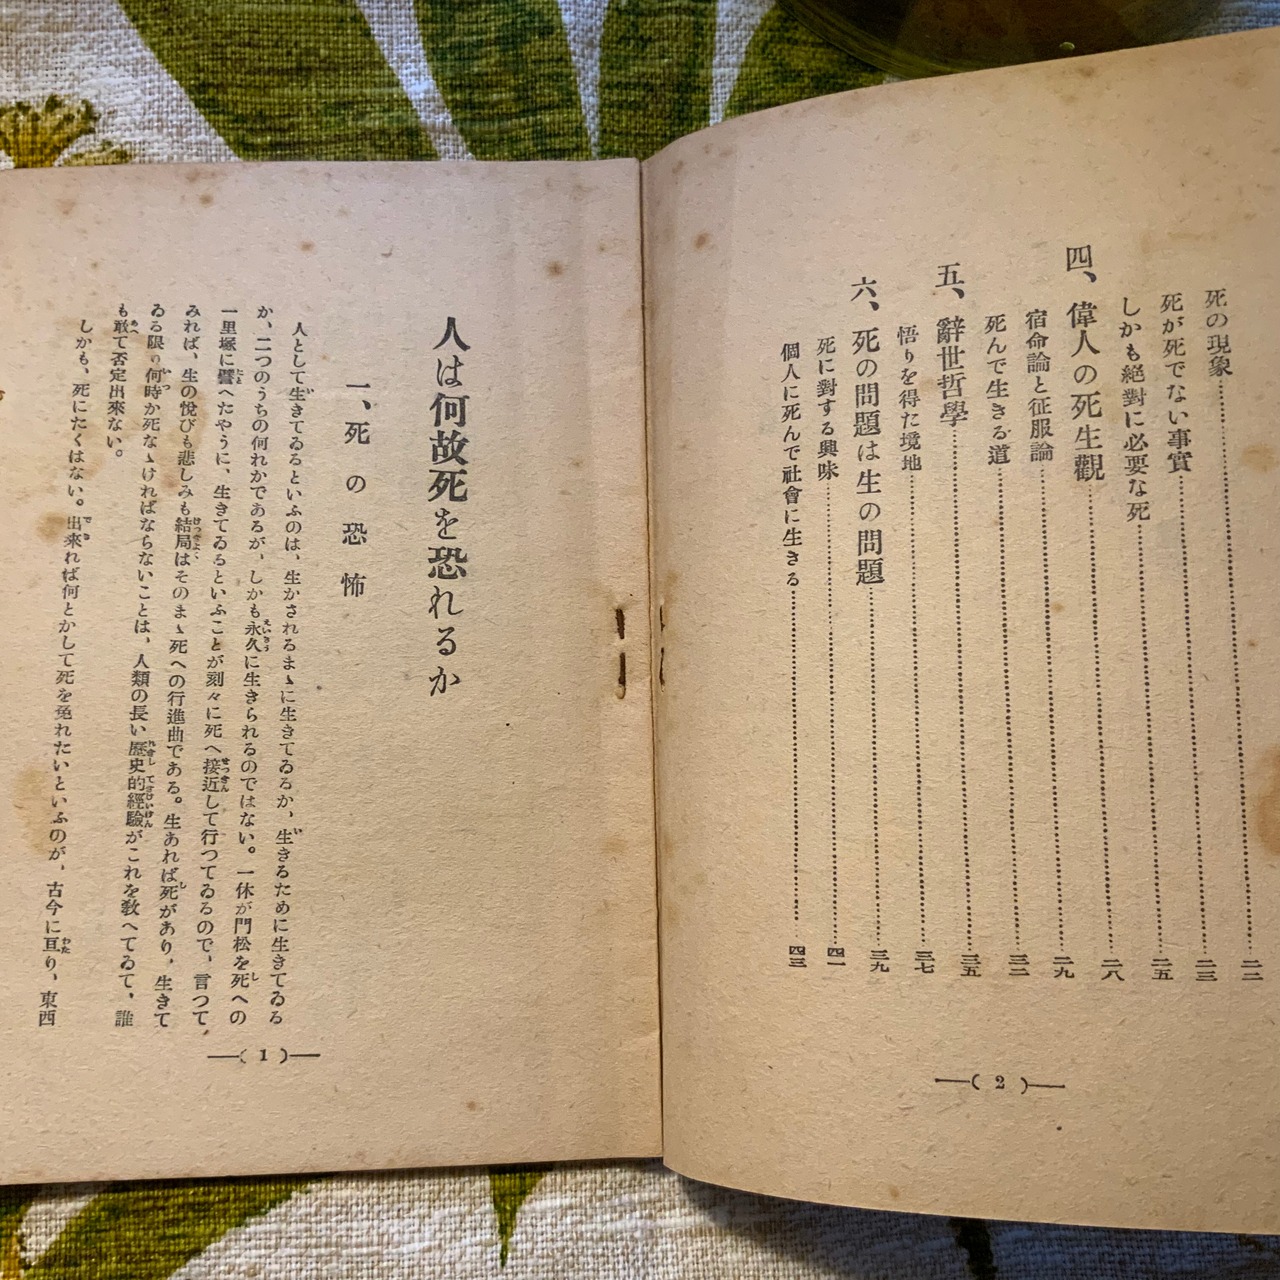 死の現象……………二二
死が死でない事實……………二三
しかも絶對に必要な死……………二五
四、偉人の死生觀……………二八
宿命論と征服論……………二九
死んで生きる道……………三二
五、辭世哲學……………三五
悟りを得た境地……………三七
六、死の問題は生の問題……………三九
死に對する興味……………四一
個人に死んで社會に生きる……………四三
—( 2 )—
人は何故死を恐れるか
一、死の恐怖
人として生きてゐるといふのは、生かされるまゝに生きてゐるか、生きるために生きてゐる
か、二つのうちの何れかであるが、しかも永久に生きられるのではない。一休が門松を死への
一里塚に譬へたやうに、生きてゐるといふことが刻々に死へ接近して行つてゐるので、言つて
みれば、生の悅びも悲しみも結局はそのまゝ死への行進曲である。生あれば死があり、生きて
ゐる限り何時か死なゝければならないことは、人類の長い歷史的經驗がこれを敎へてゐて、誰
も敢て否定出來ない。
しかも、死にたくはない。出來れば何とかして死を免れたいといふのが、古今に亘り、東西
—( 1 )—